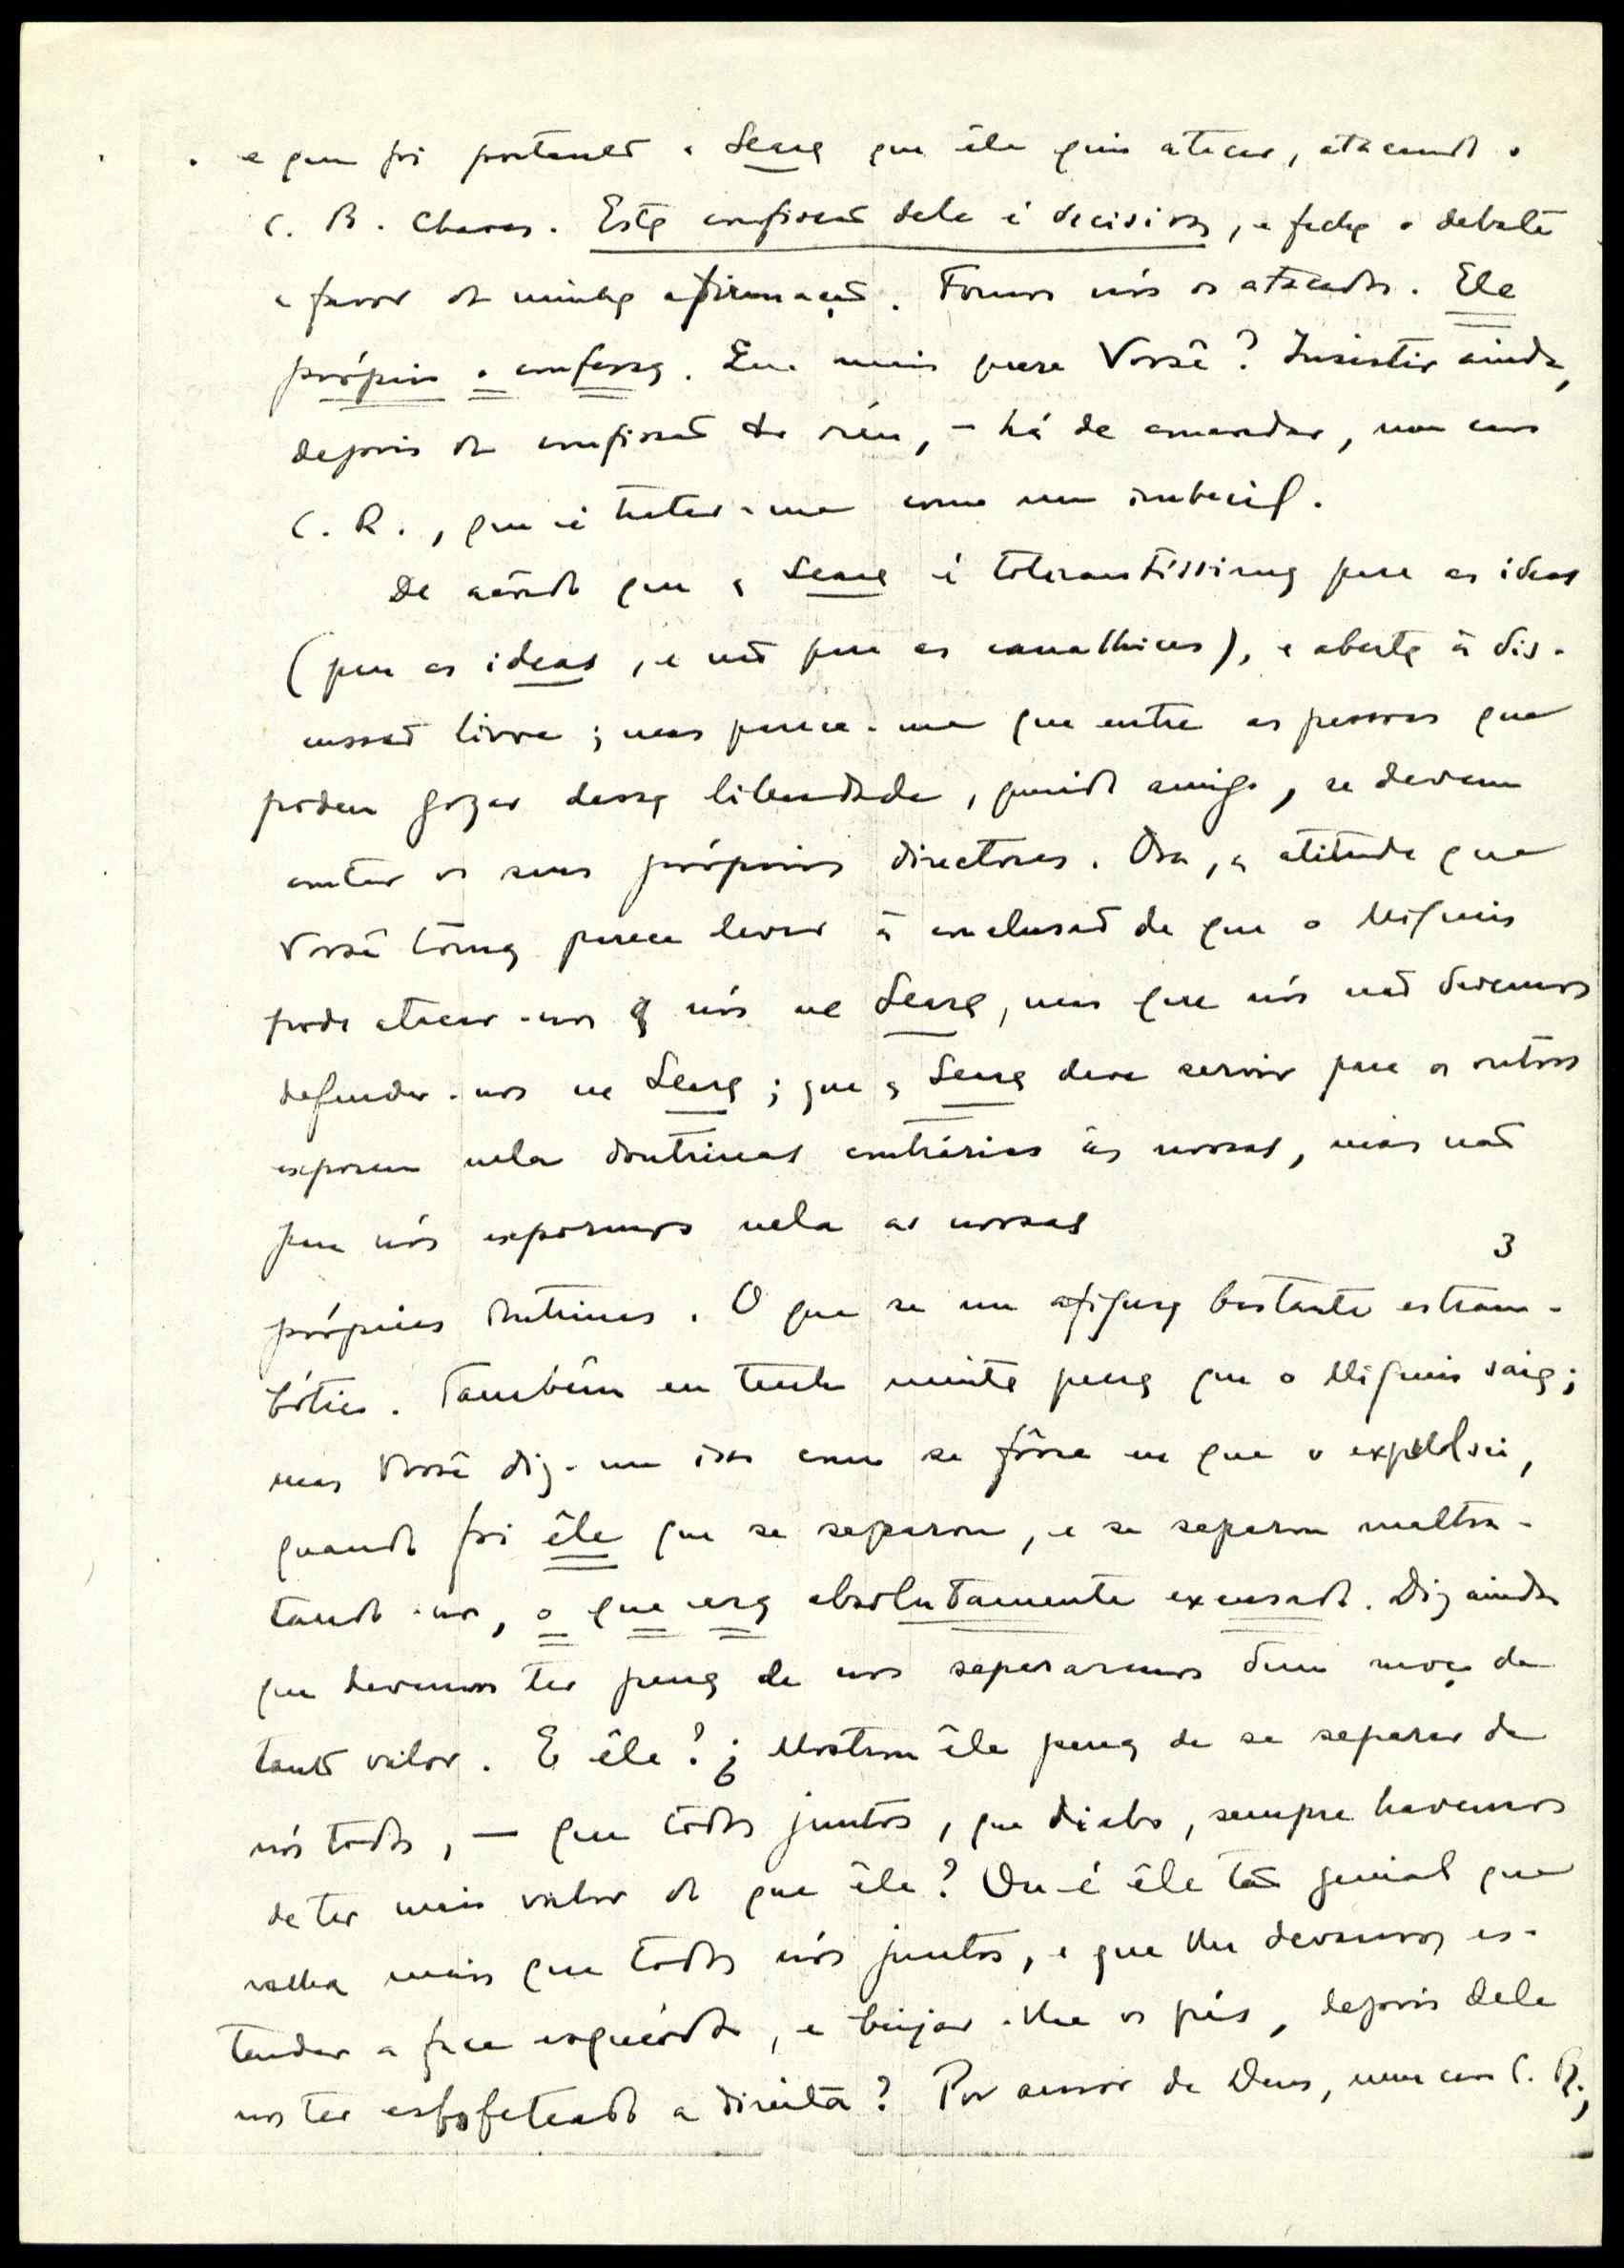 e que foi portanto a Seara que êle quis atacar, atacando o
C. B. Chaves. Esta confissão dele é decisiva, e fecha o debate
a favor da minha afirmação. Fomos nós os atacados. Ele
próprio o confessa. Que mais quere Você? Insistir ainda,
depois da confissão do réu, – há de concordar, meu caro
C. R., que é tratar-me como um imbecil.
De acôrdo que a Seara é tolerantíssima para as ideas
(para as ideas, e não para as canalhices), e aberta à dis-
cussão livre; mas parece-me que entre as pessoas que
podem gozar dessa liberdade, querido amigo, se devem
contar os seus próprios directores. Ora, a atitude que
Você toma parece levar à conclusão de que o Migueis
pode atacar-nos a nós na Seara, mas que nós não devemos
defender-nos na Seara; que a Seara deve servir para os outros
exporem nela doutrinas contrárias às nossas, mas não
para nós expormos nela as nossas
3
próprias doutrinas. O que se me afigura bastante estram-
bótico. Também eu tenho muita pena que o Migueis saia;
mas Você diz-me isso como se fôsse eu que o expulsei,
quando foi êle que se separou, e se separou maltra-
tando-nos, o que era absolutamente excusado. Diz ainda
que devemos ter pena de nos separarmos dum moço de
tanto valor. E êle? ¿Mostrou êle pena de se separar de
nós todos, — que todos juntos, que diabo, sempre havemos
de ter mais valor do que êle? Ou é êle tão genial que
valha mais que todos nós juntos, e que lhe devamos es-
tender a face esquerda, e beijar-lhe os pés, depois dele
nos ter esbofeteado a direita? Por amor de Deus, meu caro C. R.,